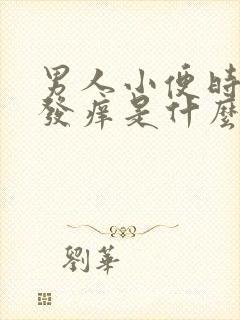 男人小便时
發痒是什麼
劉華